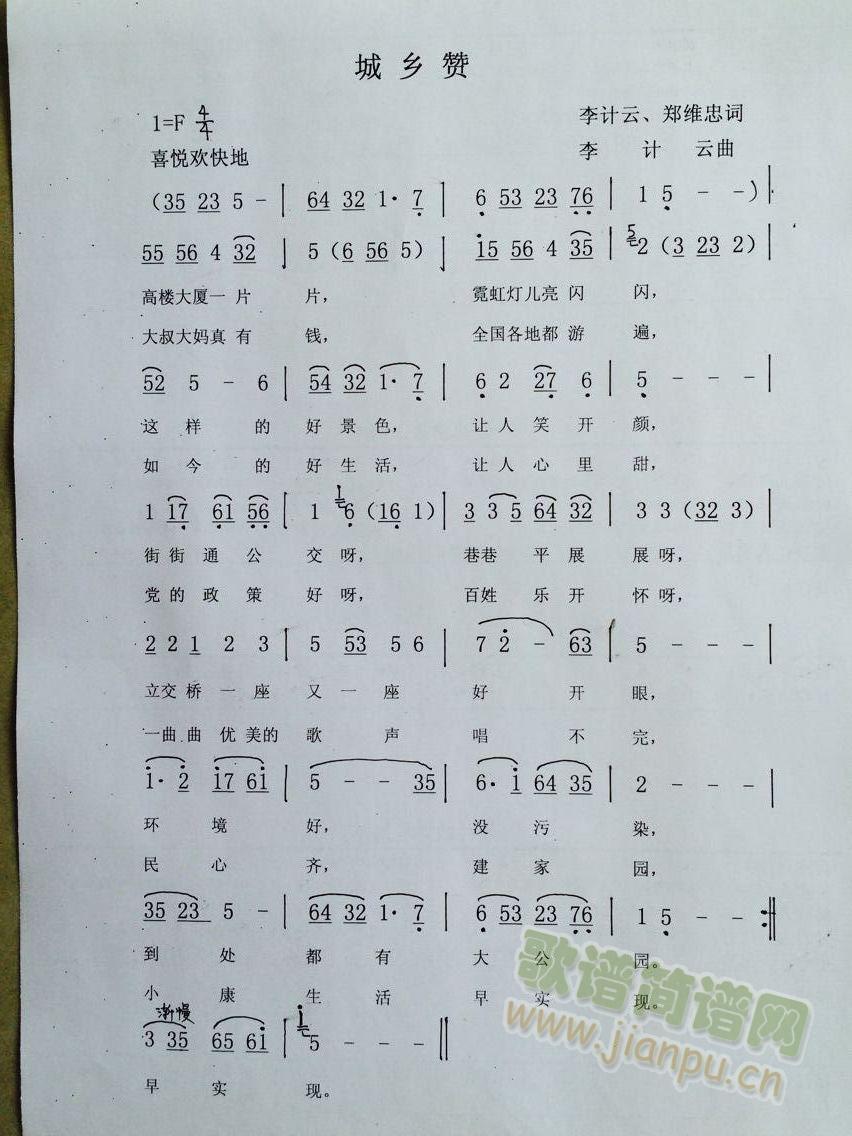 城乡赞
1=F 4/4
李计云、郑维忠词
喜悦欢快地
李 计 云曲
(35 23 5 - | 64 32 1· 7 | 6 53 23 76 | 1 5 - -)|
55 56 4 32 | 5 (6 56 5) | 15 56 4 35 | 5 2 (3 23 2) |
高楼大厦一 片 片, 霓虹灯儿亮 闪 闪,
大叔大妈真 有 钱, 全国各地都 游 遍,
52 5 - 6 | 54 32 1· 7 | 6 2 27 6 | 5 - - - |
这 样 的 好 景 色, 让 人 笑 开 颜,
如 今 的 好 生 活, 让 人 心 里 甜,
1 17 61 56 | 1 1 6 (16 1) | 3 3 5 64 32 | 3 3 (32 3) |
街 街 通 公 交 呀, 巷巷 平 展 展 呀,
党 的 政 策 好 呀, 百姓 乐 开 怀 呀,
2 2 1 2 3 | 5 53 5 6 | 7 2 - 63 | 5 - - |
立交 桥 一 座 又 一 座 好 开 眼,
一曲 曲 优 美的 歌 声 唱 不 完,
1· 2 17 61 | 5 - - 35 | 6· 1 64 35 | 2 - - - |
环 境 好, 没 污 染,
民 心 齐, 建 家 园,
35 23 5 - | 64 32 1· 7 | 6 53 23 76 | 1 5 - - :||
到 处 都 有 大 公 园。
小 康 生 活 早 实 现。
渐慢
3 35 65 61 | 1 5 - - - ||
早 实 现。
歌谱简谱网
www.jianpu.cn